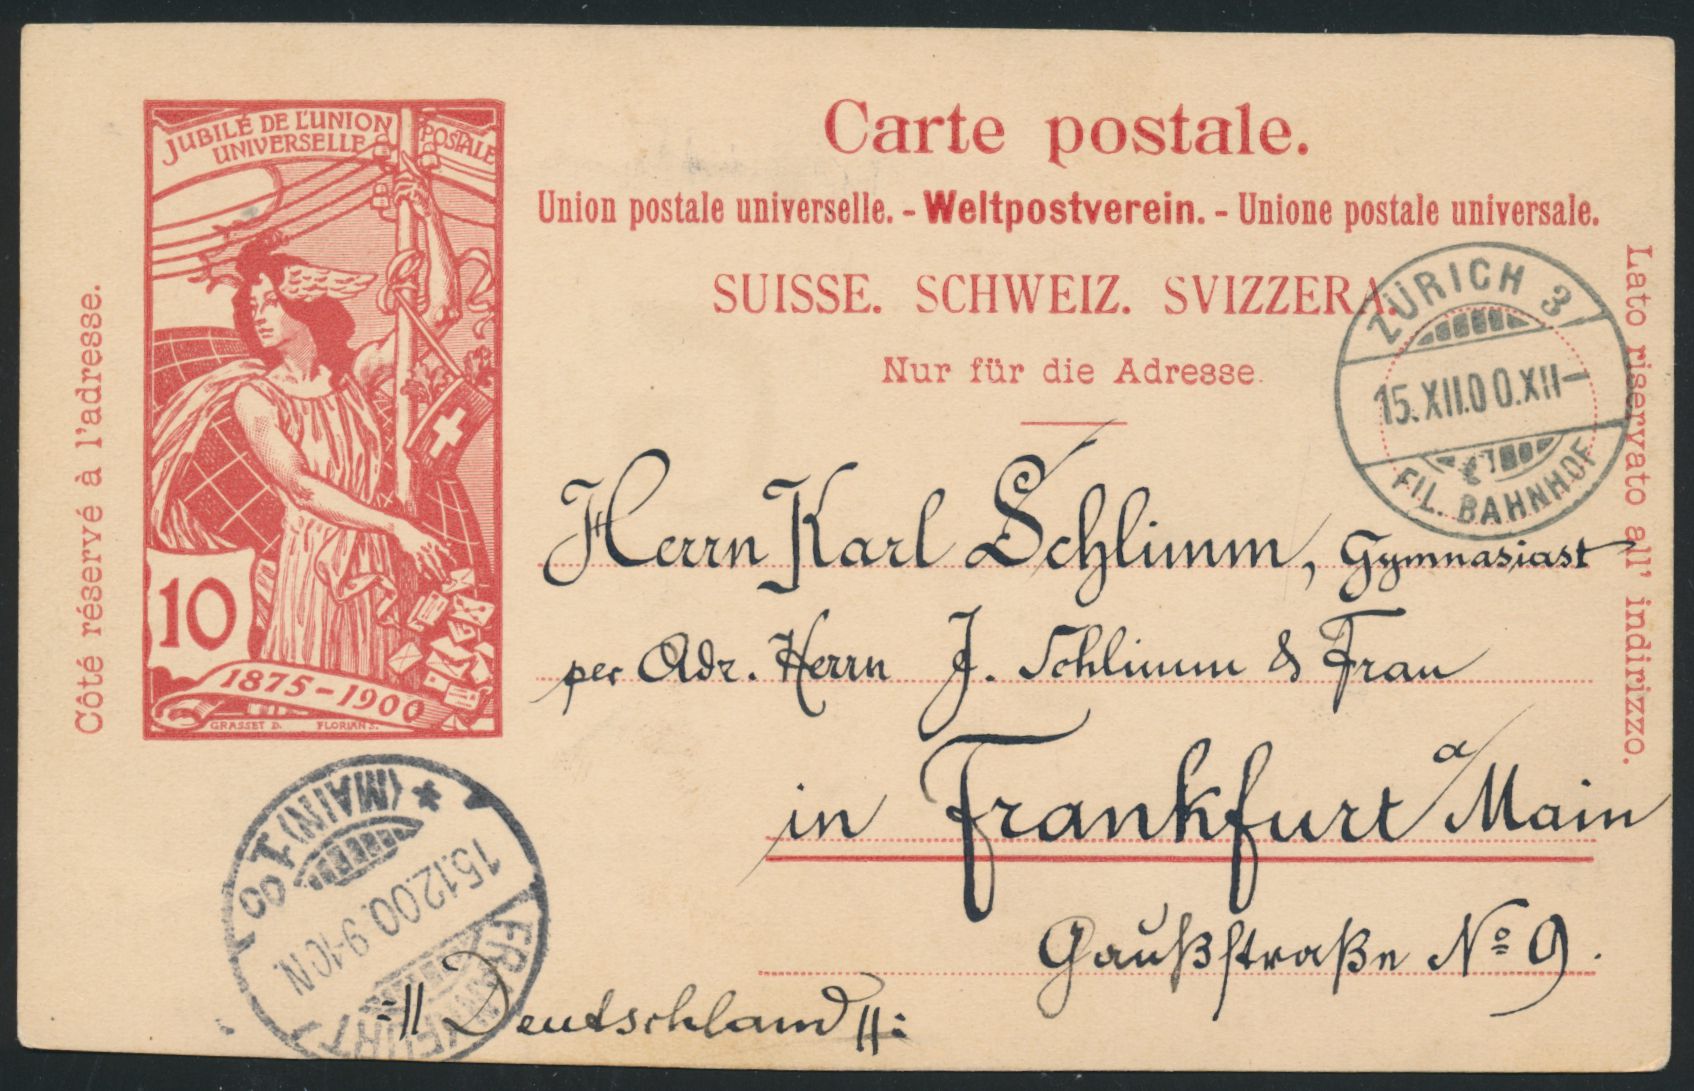 Carte postale.
Union postale universelle. - Weltpostverein. - Unione postale universale.
SUISSE. SCHWEIZ. SVIZZERA.
Nur für die Adresse.
Côté réservé à l'adresse.
Lato riservato all' indirizzo.
JUBILÉ DE L'UNION POSTALE
UNIVERSELLE
10
1875-1900
GRASSET D. FLORIAN S.
ZÜRICH 3
15.XII.00.XII-
FIL. BAHNHOF
Herrn Karl Schlimm, Gymnasiast
per Adr. Herrn J. Schlimm & Frau
in Frankfurt a/Main
Gaußstraße No 9.
:// Deutschland //:
FRANKFURT (MAIN) 1. 00
*
15.12.00. 9-10 N.